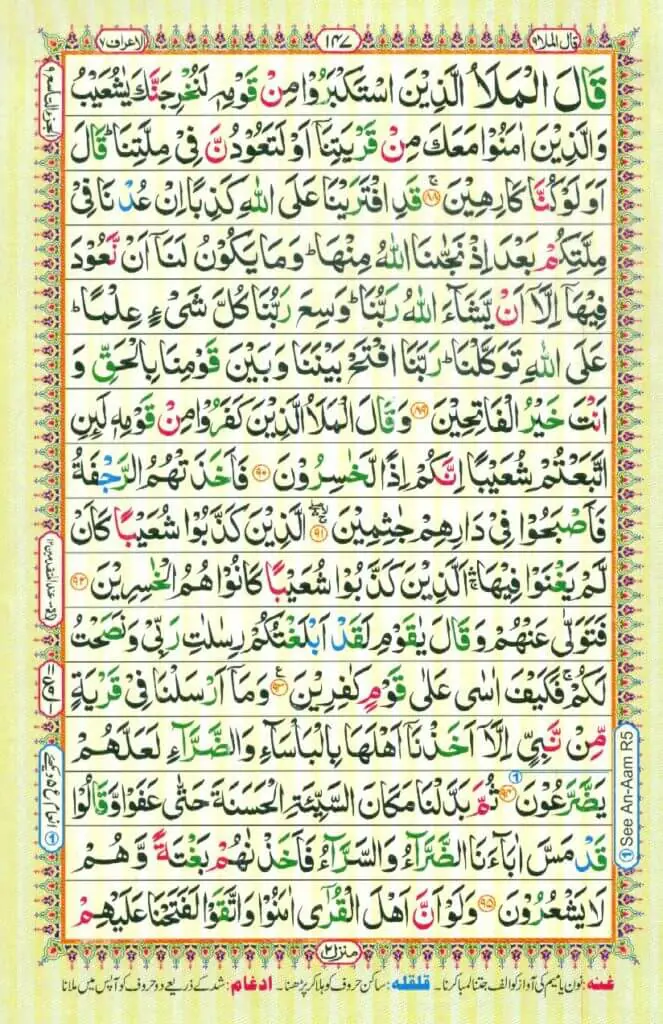 قال الملا ٩
١٤٧
الاعراف ٧
قَالَ الْمَلَاُ الَّذِيْنَ اسْتَكْبَرُوْا مِنْ قَوْمِهٖ لَنُخْرِجَنَّكَ يٰشُعَيْبُ
وَالَّذِيْنَ اٰمَنُوْا مَعَكَ مِنْ قَرْيَتِنَاۤ اَوْ لَتَعُوْدُنَّ فِيْ مِلَّتِنَا ؕ قَالَ
اَوَلَوْ كُنَّا كَارِهِيْنَ ۚ ﴿۸۸﴾ قَدِ افْتَرَيْنَا عَلَى اللّٰهِ كَذِبًا اِنْ عُدْنَا فِيْ
مِلَّتِكُمْ بَعْدَ اِذْ نَجّٰىنَا اللّٰهُ مِنْهَا ؕ وَمَا يَكُوْنُ لَنَاۤ اَنْ نَّعُوْدَ
فِيْهَاۤ اِلَّاۤ اَنْ يَّشَآءَ اللّٰهُ رَبُّنَا ؕ وَسِعَ رَبُّنَا كُلَّ شَيْءٍ عِلْمًا ؕ
عَلَى اللّٰهِ تَوَكَّلْنَا ؕ رَبَّنَا افْتَحْ بَيْنَنَا وَبَيْنَ قَوْمِنَا بِالْحَقِّ وَ
اَنْتَ خَيْرُ الْفَاتِحِيْنَ ﴿۸۹﴾ وَقَالَ الْمَلَاُ الَّذِيْنَ كَفَرُوْا مِنْ قَوْمِهٖ لَئِنِ
اتَّبَعْتُمْ شُعَيْبًا اِنَّكُمْ اِذًا لَّخٰسِرُوْنَ ﴿۹۰﴾ فَاَخَذَتْهُمُ الرَّجْفَةُ
فَاَصْبَحُوْا فِيْ دَارِهِمْ جٰثِمِيْنَ ﴿۹۱﴾ الَّذِيْنَ كَذَّبُوْا شُعَيْبًا كَاَنْ
لَّمْ يَغْنَوْا فِيْهَا ۛ اَلَّذِيْنَ كَذَّبُوْا شُعَيْبًا كَانُوْا هُمُ الْخٰسِرِيْنَ ﴿۹۲﴾
فَتَوَلّٰى عَنْهُمْ وَقَالَ يٰقَوْمِ لَقَدْ اَبْلَغْتُكُمْ رِسٰلٰتِ رَبِّيْ وَنَصَحْتُ
لَكُمْ ۚ فَكَيْفَ اٰسٰى عَلٰى قَوْمٍ كٰفِرِيْنَ ﴿۹۳﴾ وَمَاۤ اَرْسَلْنَا فِيْ قَرْيَةٍ
مِّنْ نَّبِيٍّ اِلَّاۤ اَخَذْنَاۤ اَهْلَهَا بِالْبَاْسَآءِ وَالضَّرَّآءِ لَعَلَّهُمْ
يَضَّرَّعُوْنَ ﴿۹۴﴾ ثُمَّ بَدَّلْنَا مَكَانَ السَّيِّئَةِ الْحَسَنَةَ حَتّٰى عَفَوْا وَّقَالُوْا
قَدْ مَسَّ اٰبَآءَنَا الضَّرَّآءُ وَالسَّرَّآءُ فَاَخَذْنٰهُمْ بَغْتَةً وَّهُمْ
لَا يَشْعُرُوْنَ ﴿۹۵﴾ وَلَوْ اَنَّ اَهْلَ الْقُرٰۤى اٰمَنُوْا وَاتَّقَوْا لَفَتَحْنَا عَلَيْهِمْ
① See An-Aam R5
منزل ٢
غنه: نون یا میم کی آواز کو الف جتنا لمبا کرنا۔ قلقله: ساکن حروف کو ہلا کر پڑھنا۔ ادغام: شد کے ذریعے دو حروف کو آپس میں ملانا